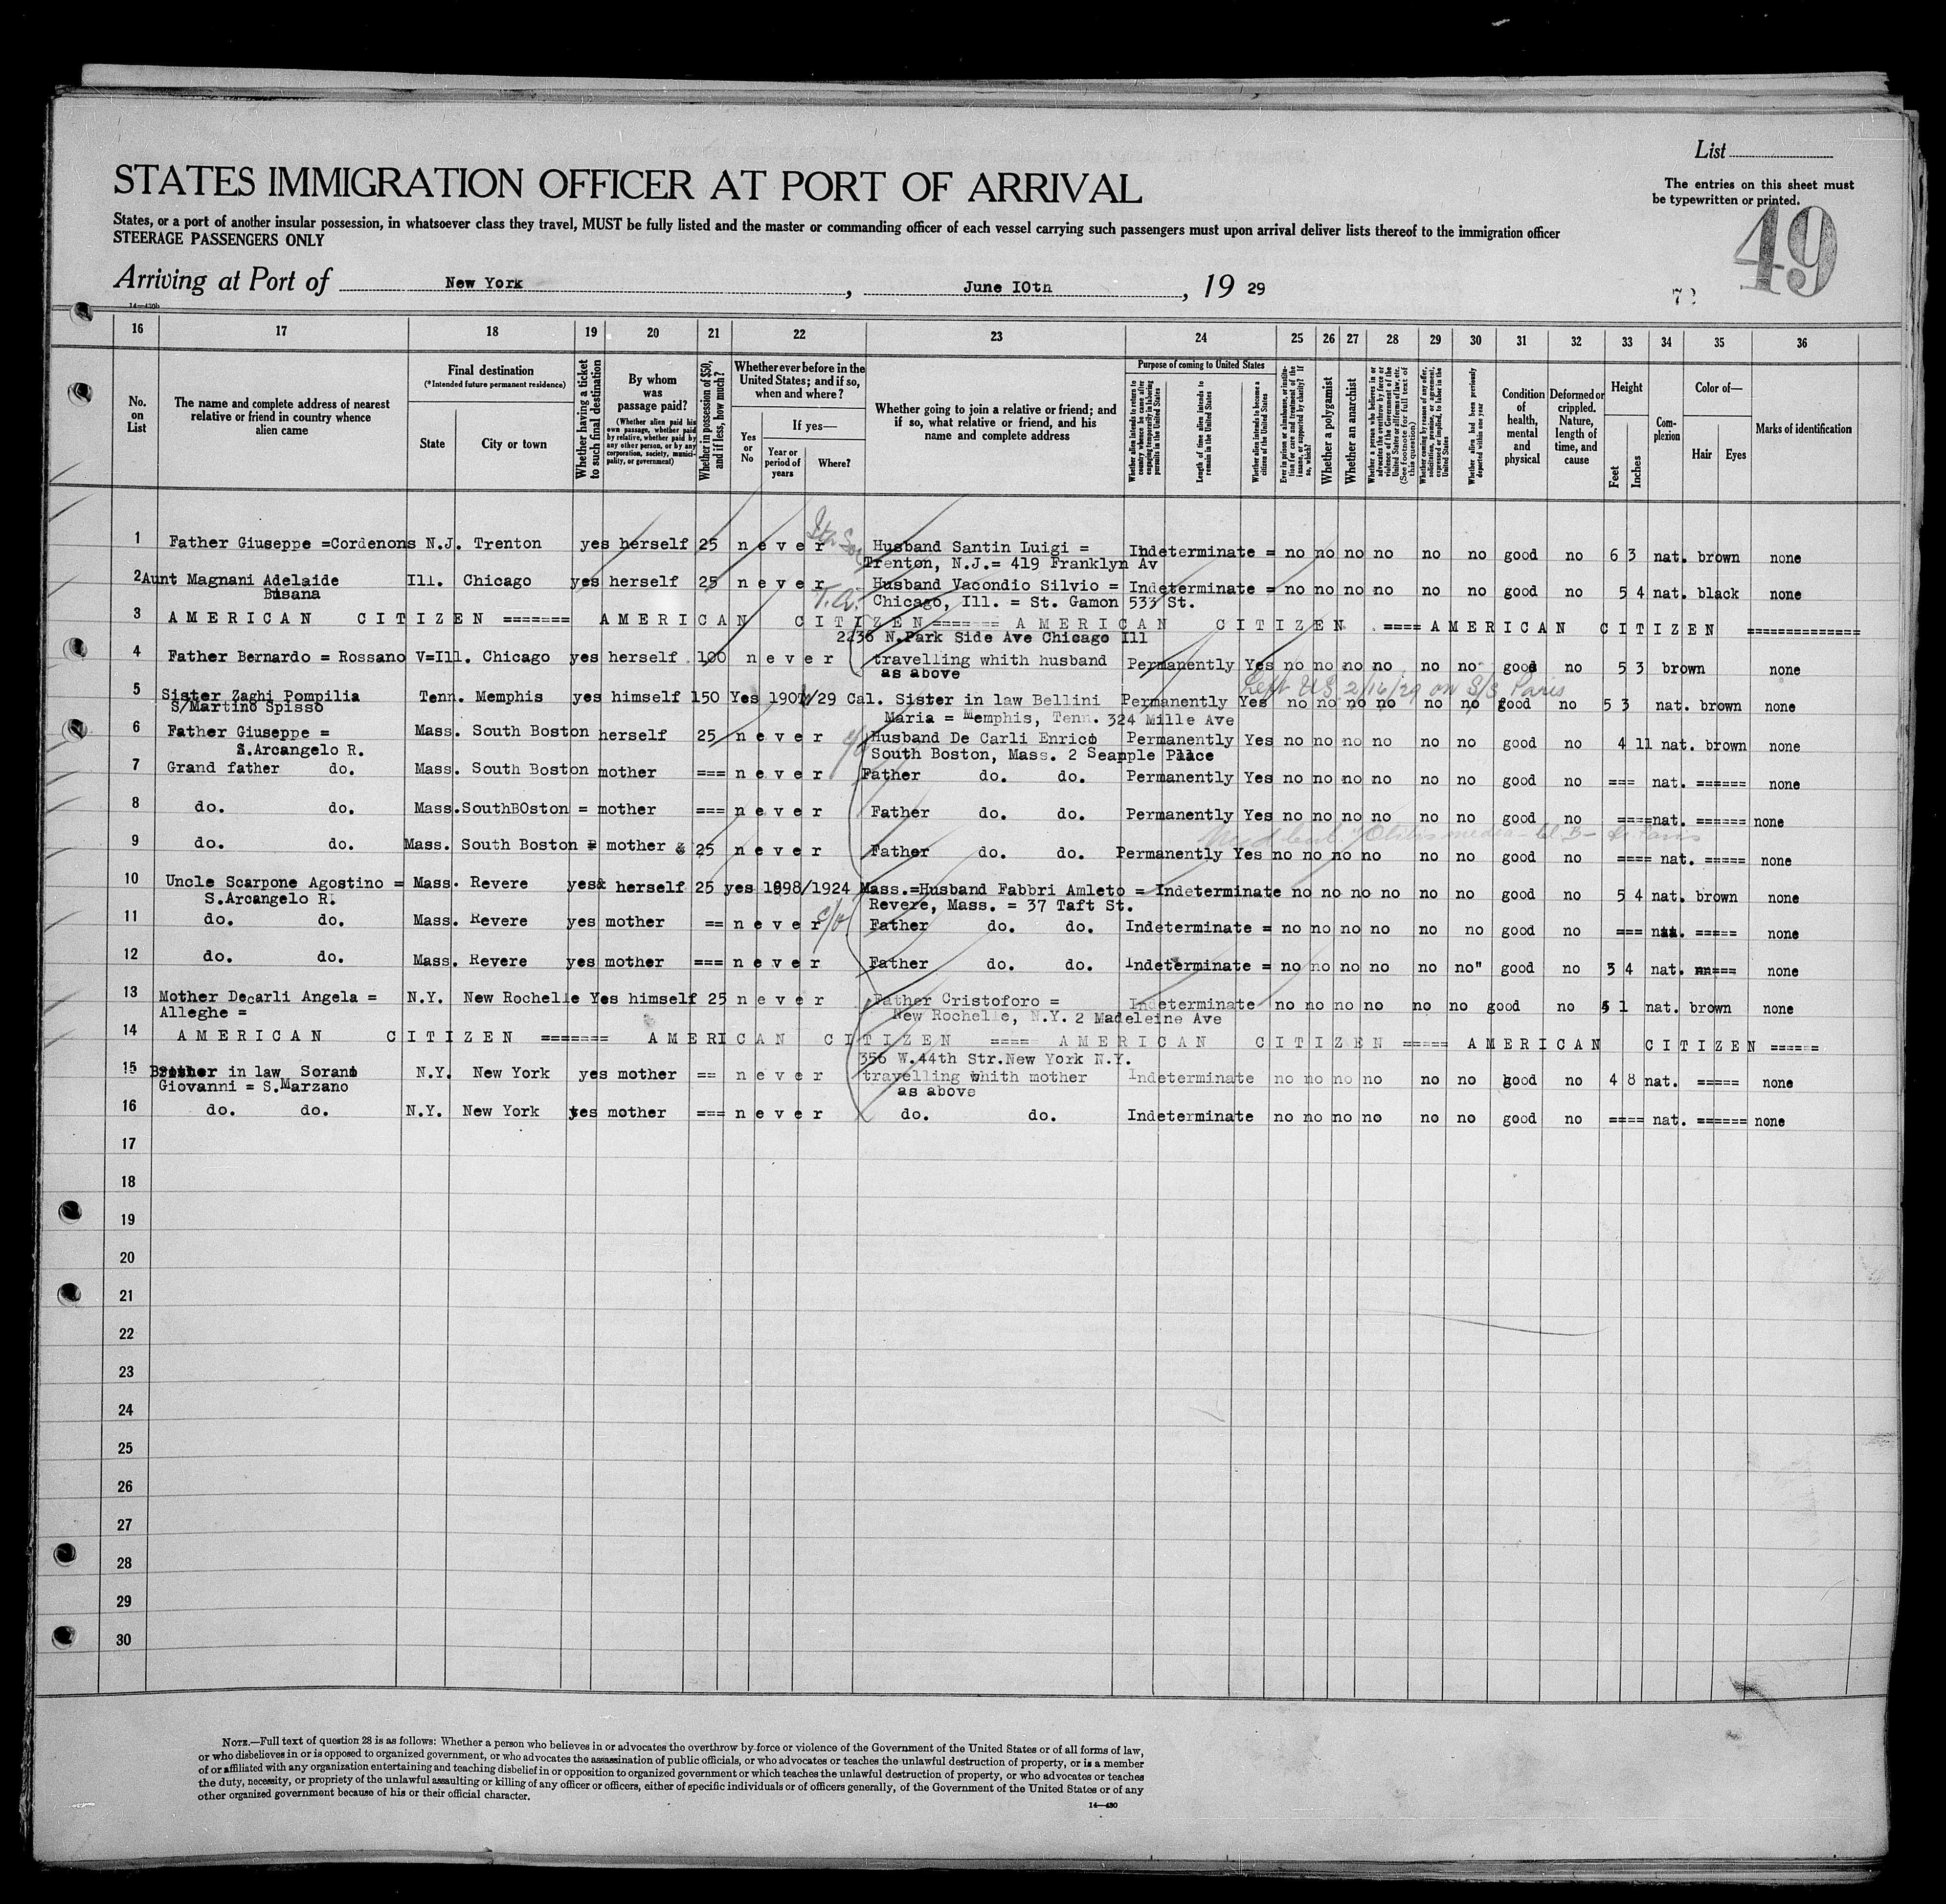 List
The entries on this sheet must
be typewritten or printed.
49
STATES IMMIGRATION OFFICER AT PORT OF ARRIVAL
States, or a port of another insular possession, in whatsoever class they travel, MUST be fully listed and the master or commanding officer of each vessel carrying such passengers must upon arrival deliver lists thereof to the immigration officer
STEERAGE PASSENGERS ONLY
Arriving at Port of New York, June 10th, 19 29
14—430b
16 17 18 19 20 21 22 23 24 25 26 27 28 29 30 31 32 33 34 35 36
No. on List
The name and complete address of nearest relative or friend in country whence alien came
Final destination
(*Intended future permanent residence)
State
City or town
Whether having a ticket to such final destination
By whom was passage paid?
(Whether alien paid his own passage, whether paid by relative, whether paid by any other person, or by any corporation, society, municipality, or government)
Whether in possession of $50, and if less, how much?
Whether ever before in the United States; and if so, when and where?
Yes or No
If yes—
Year or period of years
Where?
Whether going to join a relative or friend; and if so, what relative or friend, and his name and complete address
Purpose of coming to United States
Whether alien intends to return to country whence he came after engaging temporarily in laboring pursuits in the United States
Length of time alien intends to remain in the United States
Whether alien intends to become a citizen of the United States
Ever in prison or almshouse, or institution for care and treatment of the insane, or supported by charity? If so, which?
Whether a polygamist
Whether an anarchist
Whether a person who believes in or advocates the overthrow by force or violence of the Government of the United States or all forms of law, etc. (See footnote for full text of this question)
Whether coming by reason of any offer, solicitation, promise, or agreement, expressed or implied, to labor in the United States
Whether alien had been previously deported within one year
Condition of health, mental and physical
Deformed or crippled. Nature, length of time, and cause
Height
Feet
Inches
Complexion
Color of—
Hair
Eyes
Marks of identification
1 Father Giuseppe =Cordenons N.J. Trenton yes herself 25 never Husband Santin Luigi = Indeterminate = no no no no no no good no 6 3 nat. brown none
Trenton, N.J.= 419 Franklyn Av
2 Aunt Magnani Adelaide Ill. Chicago yes herself 25 never Husband Vacondio Silvio = Indeterminate = no no no no no no good no 5 4 nat. black none
Busana Chicago, Ill. = St. Gamon 533 St.
T.A.
3 AMERICAN CITIZEN ======= AMERICAN CITIZEN======= AMERICAN CITIZEN .==== AMERICAN CITIZEN =============
2236 N.Park Side Ave Chicago Ill
4 Father Bernardo = Rossano V=Ill. Chicago yes herself 100 never travelling whith husband Permanently Yes no no no no no no good no 5 3 brown none
as above
Left US 2/16/29 on S/S Paris
5 Sister Zaghi Pompilia Tenn. Memphis yes himself 150 Yes 1907/29 Cal. Sister in law Bellini Permanently Yes no no no no no no good no 5 3 nat. brown none
S/Martino Spisso Maria = Memphis, Tenn. 324 Mille Ave
6 Father Giuseppe = Mass. South Boston herself 25 never Husband De Carli Enrico Permanently Yes no no no no no no good no 4 11 nat. brown none
S.Arcangelo R. South Boston, Mass. 2 Seample Place
7 Grand father do. Mass. South Boston mother === never Father do. do. Permanently Yes no no no no no no good no === nat. ====== none
8 do. do. Mass.SouthBOston = mother === never Father do. do. Permanently Yes no no no no no no good no ====nat. ====== none
9 do. do. Mass. South Boston = mother & 25 never Father do. do. Permanently Yes no no no no no no good no ==== nat. ===== none
10 Uncle Scarpone Agostino = Mass. Revere yes& herself 25 yes 1898/1924 Mass.=Husband Fabbri Amleto = Indeterminate no no no no no no good no 5 4 nat. brown none
S.Arcangelo R. Revere, Mass. = 37 Taft St.
11 do. do. Mass. Revere yes mother == never Father do. do. Indeterminate = no no no no no no good no === nat. ===== none
12 do. do. Mass. Revere yes mother === never Father do. do. Indeterminate = no no no no no no" good no 3 4 nat. ===== none
13 Mother Decarli Angela = N.Y. New Rochelle Yes himself 25 never Father Cristoforo = Indeterminate no no no no no no good no 5 1 nat. brown none
Alleghe = New Rochelle, N.Y. 2 Madeleine Ave
14 AMERICAN CITIZEN ======= AMERICAN CITIZEN ==== AMERICAN CITIZEN ===== AMERICAN CITIZEN ======
356 W.44th Str.New York N.Y.
15 Brother in law Sorano N.Y. New York yes mother == never travelling whith mother Indeterminate no no no no no no good no 4 8 nat. ===== none
Giovanni = S.Marzano as above
16 do. do. N.Y. New York yes mother === never do. do. Indeterminate no no no no no no good no ==== nat. ====== none
17
18
19
20
21
22
23
24
25
26
27
28
29
30
NOTE.—Full text of question 28 is as follows: Whether a person who believes in or advocates the overthrow by force or violence of the Government of the United States or of all forms of law,
or who disbelieves in or is opposed to organized government, or who advocates the assassination of public officials, or who advocates or teaches the unlawful destruction of property, or is a member
of or affiliated with any organization entertaining and teaching disbelief in or opposition to organized government or which teaches the unlawful destruction of property, or who advocates or teaches
the duty, necessity, or propriety of the unlawful assaulting or killing of any officer or officers, either of specific individuals or of officers generally, of the Government of the United States or of any
other organized government because of his or their official character.
14—430